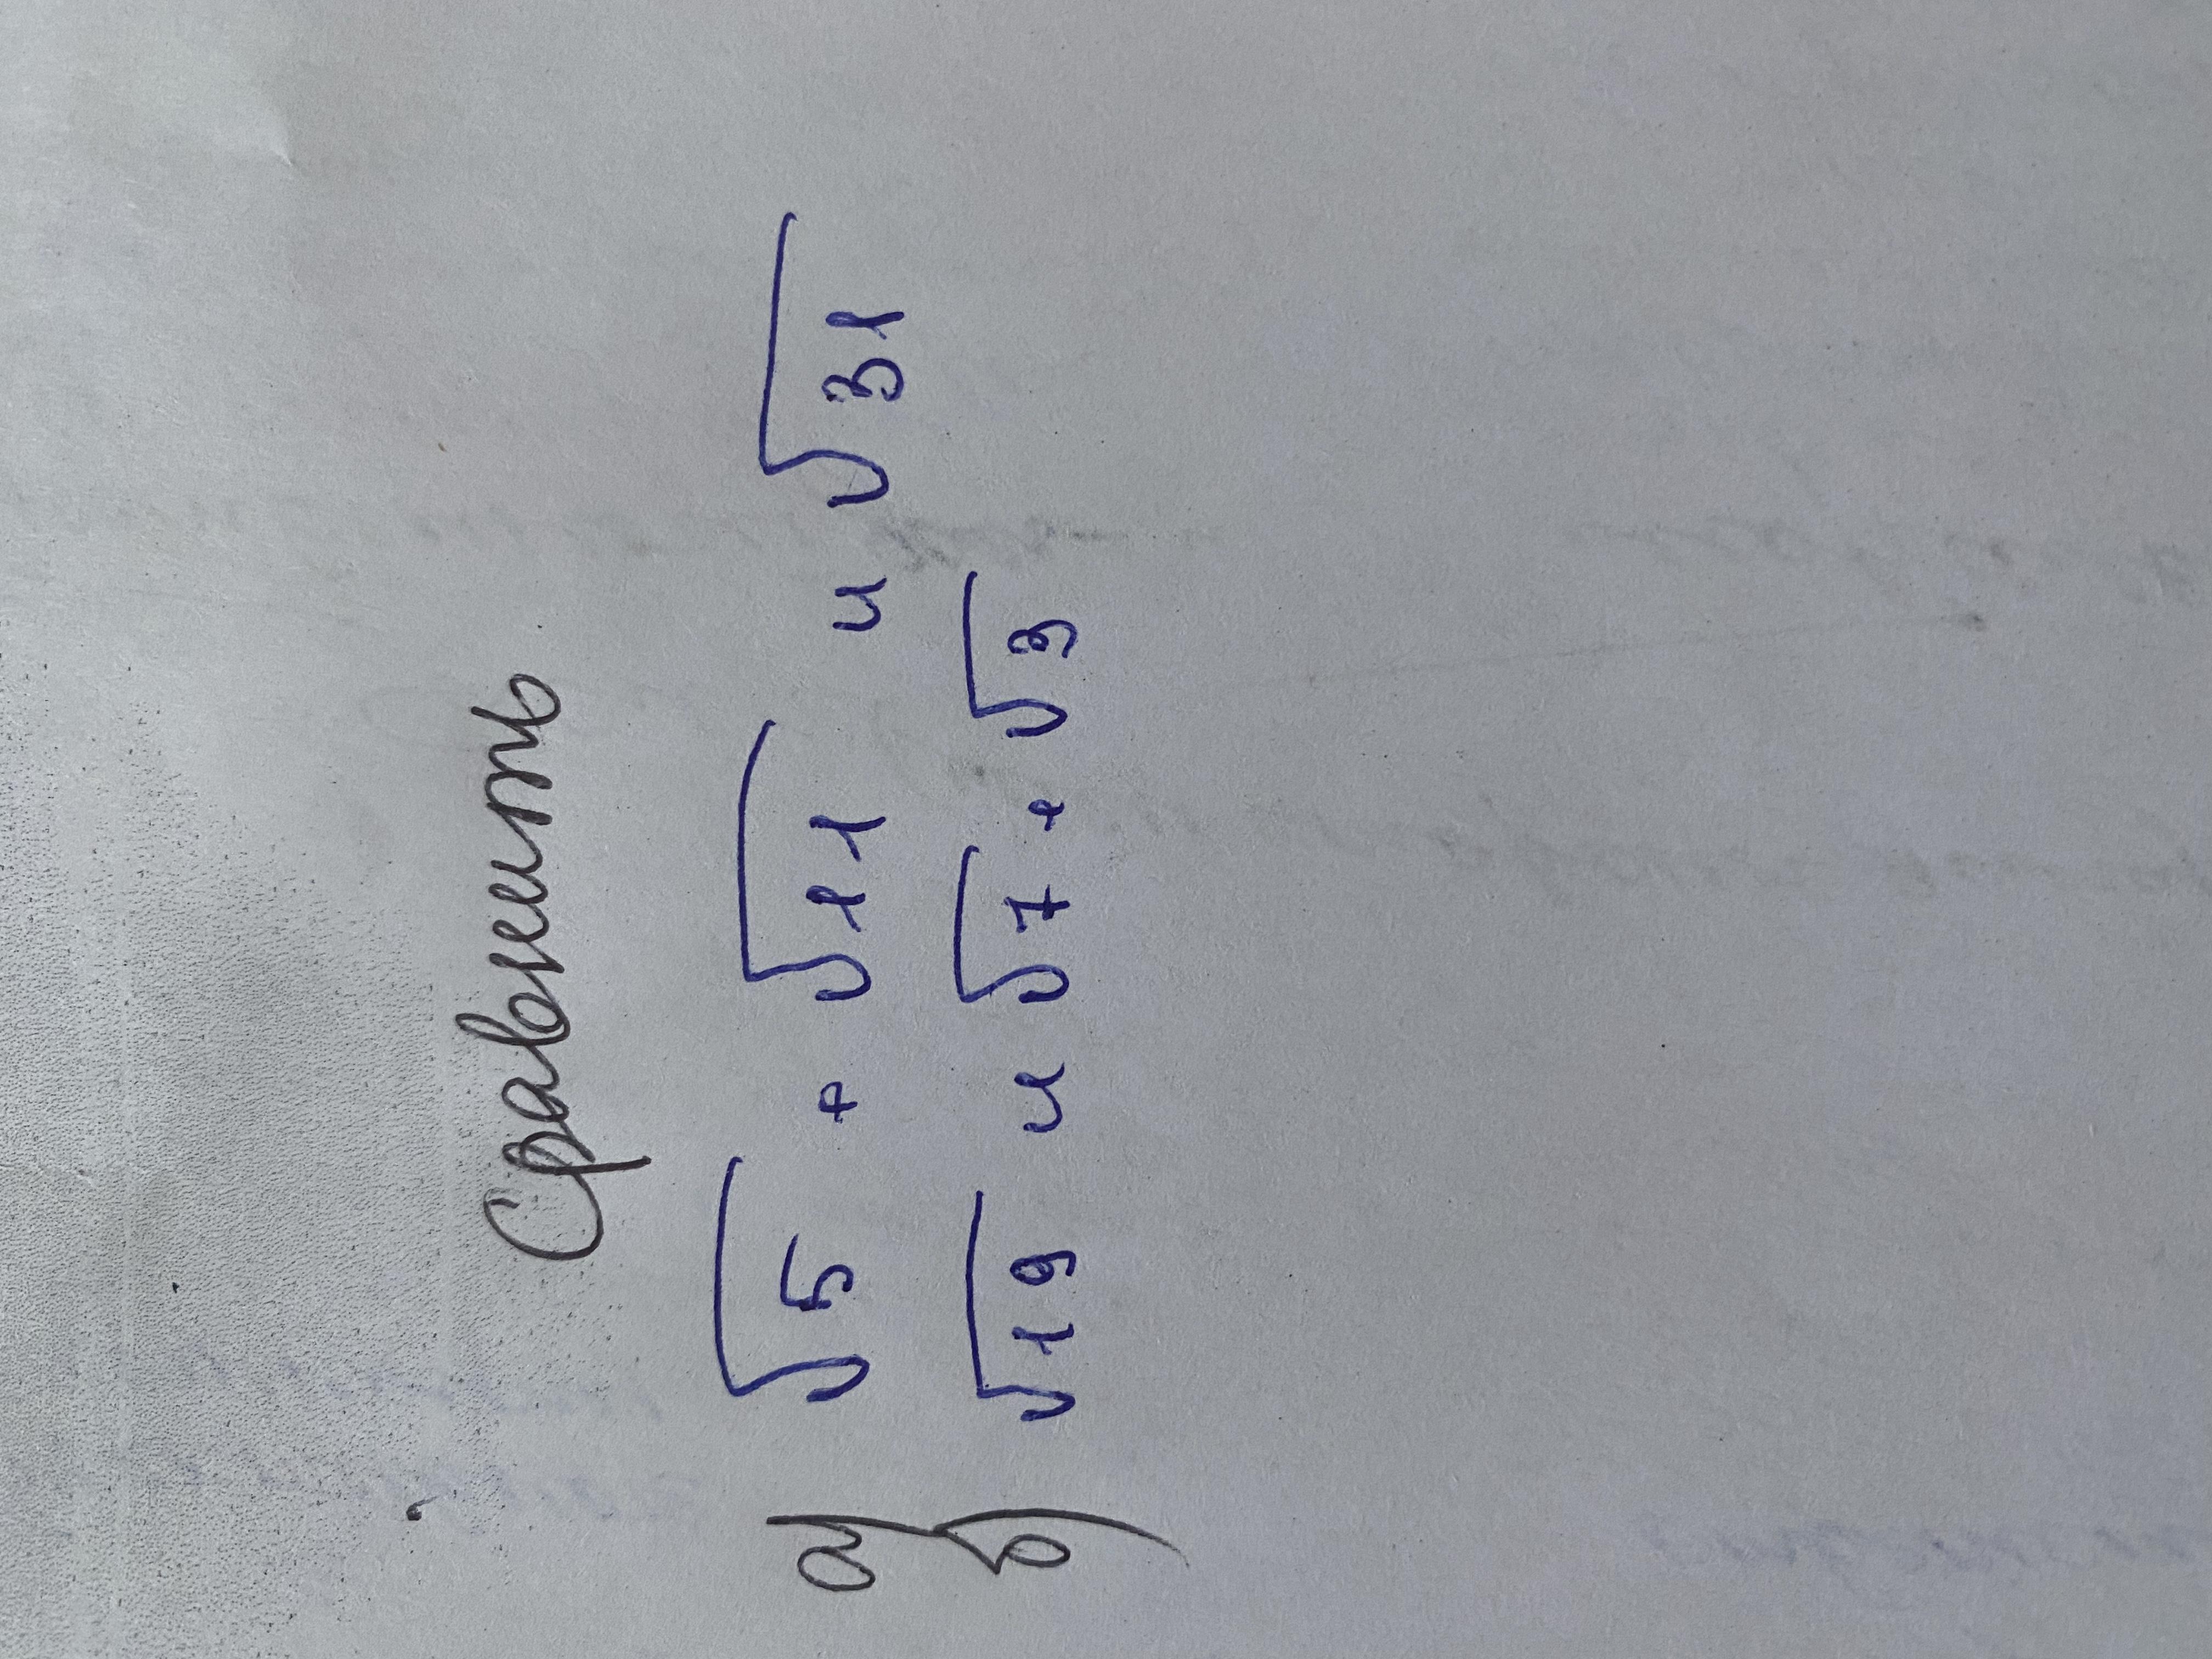 Сравнить
а) √5 + √11 и √31
б) √19 и √7 + √3